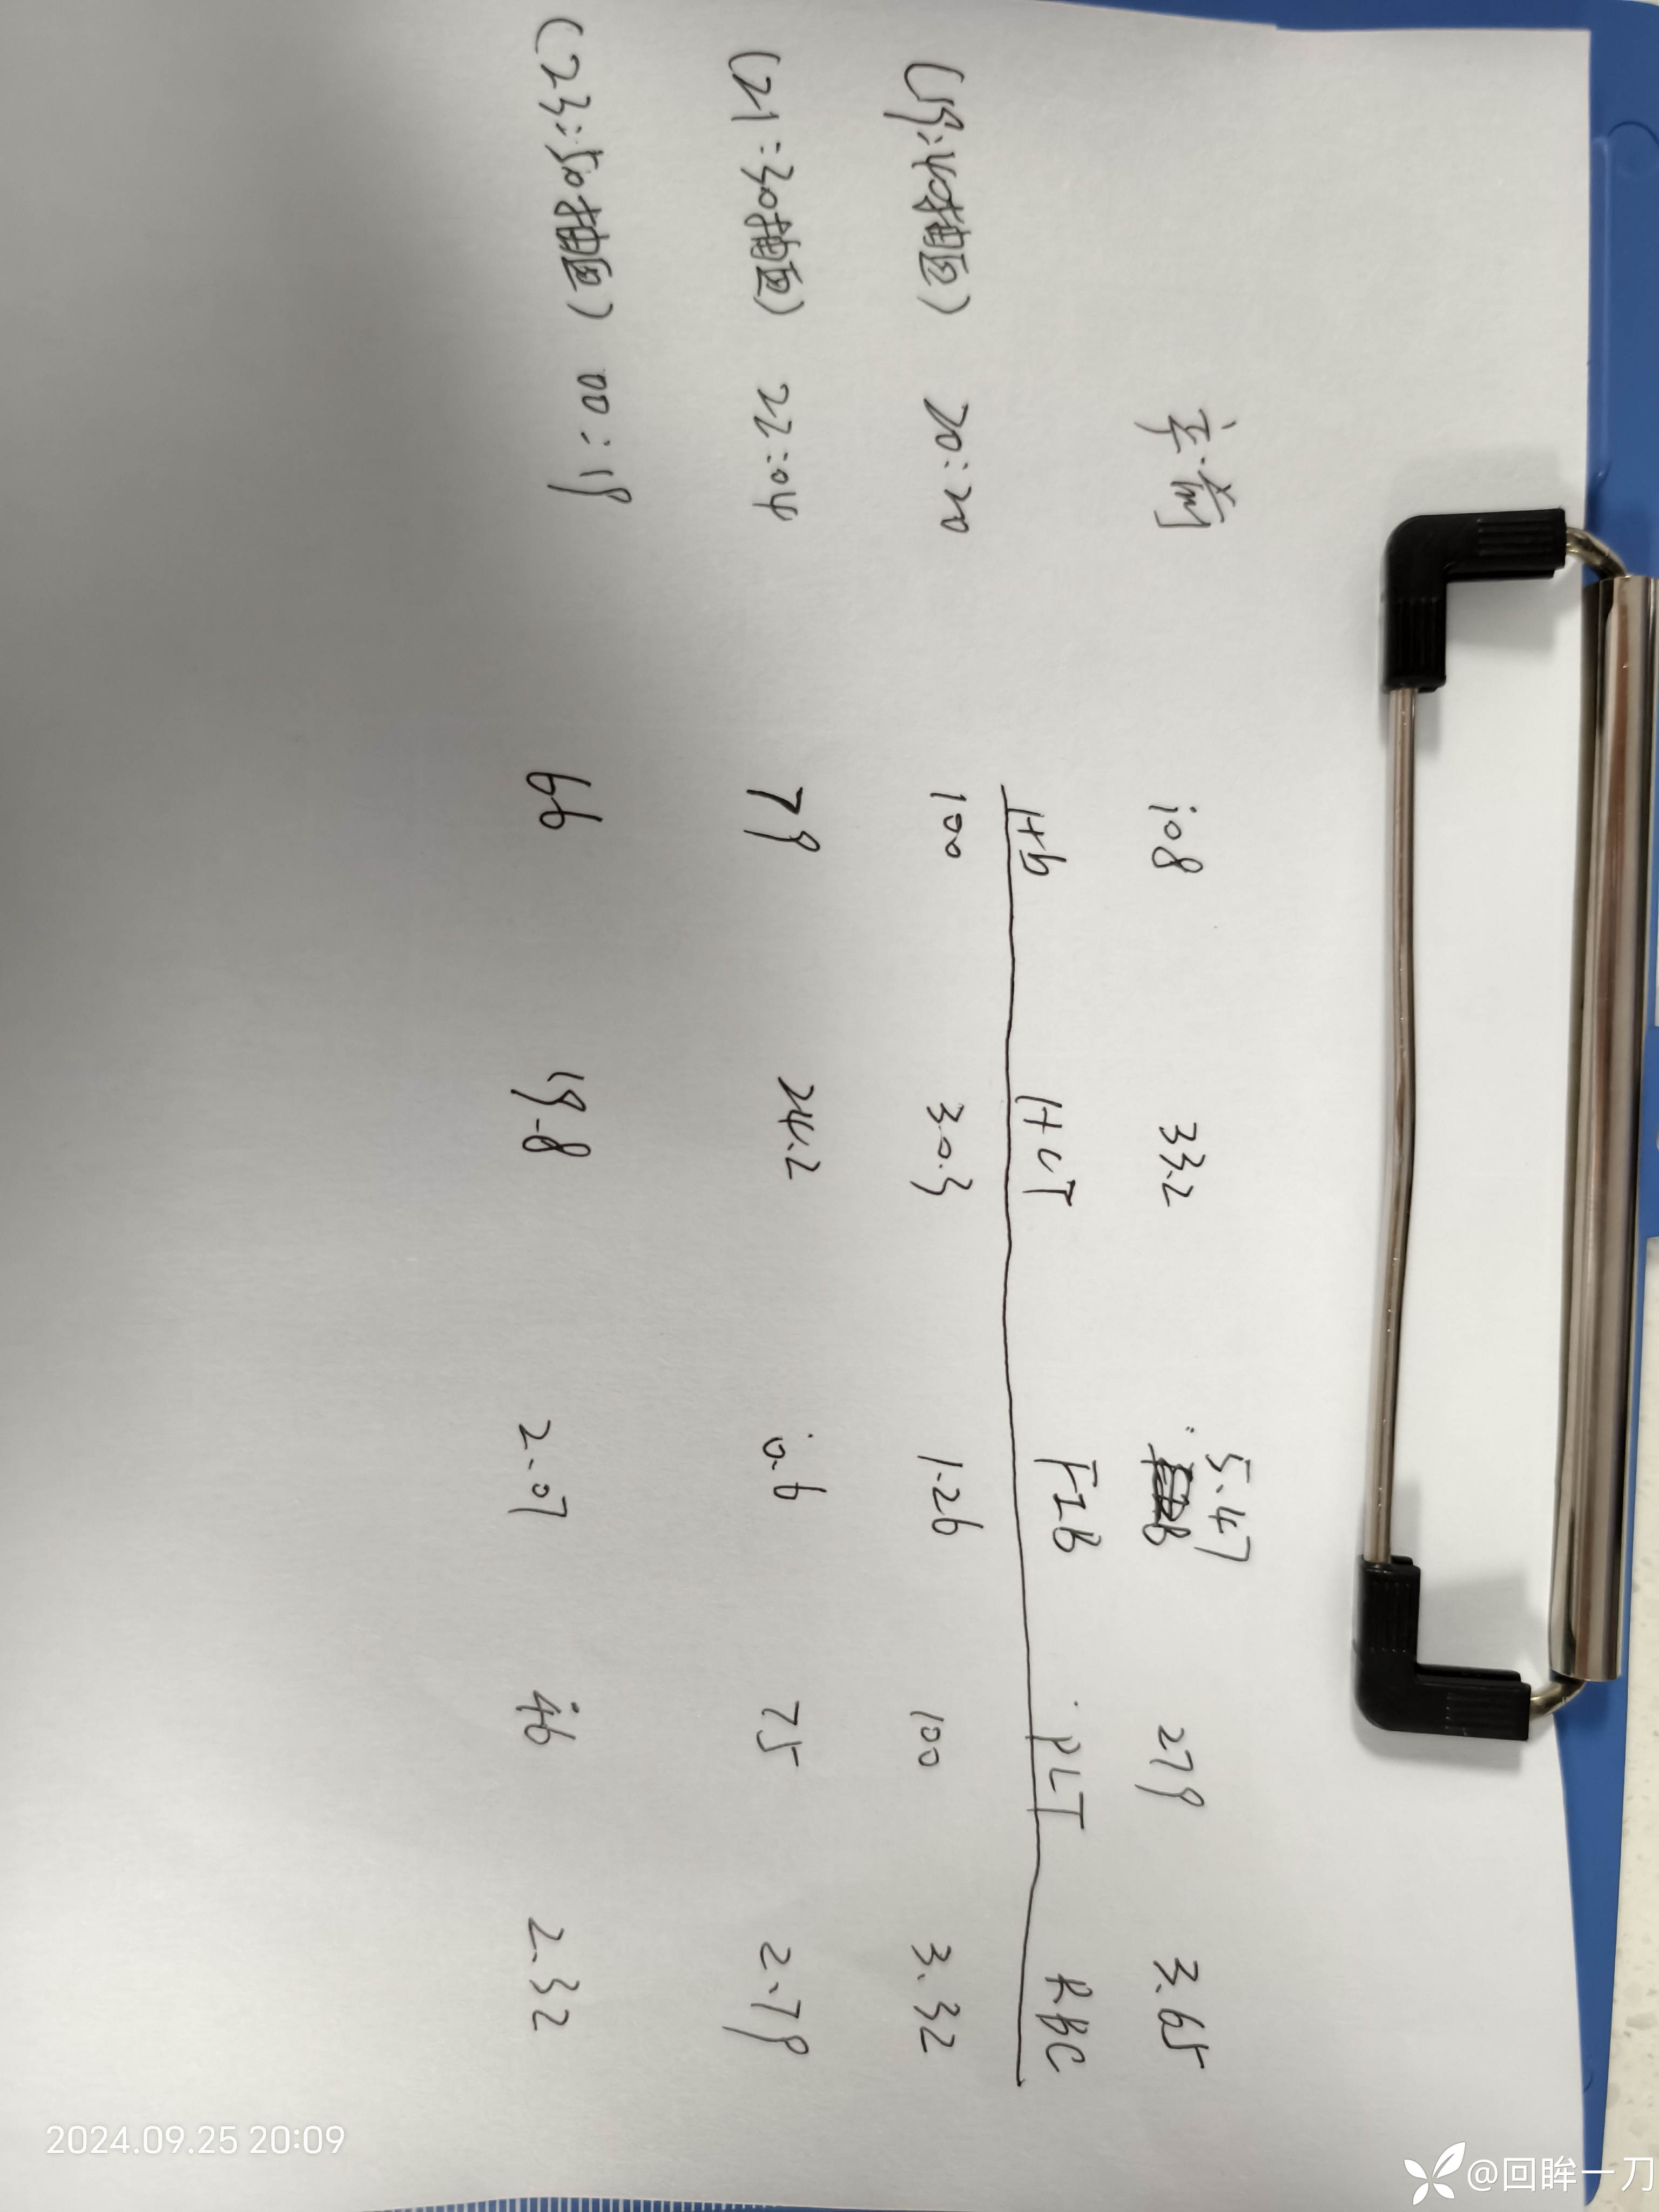 产前 108 33.2 5.47 279 3.65
Hb HCT FIB PLT RBC
(19:40抽血) 20:20 100 30.3 1.26 100 3.32
(21:30抽血) 22:04 79 24.2 0.6 75 2.79
(23:50抽血) 00:19 66 19.8 2.07 46 2.32
2024.09.25 20:09
@回眸一刀